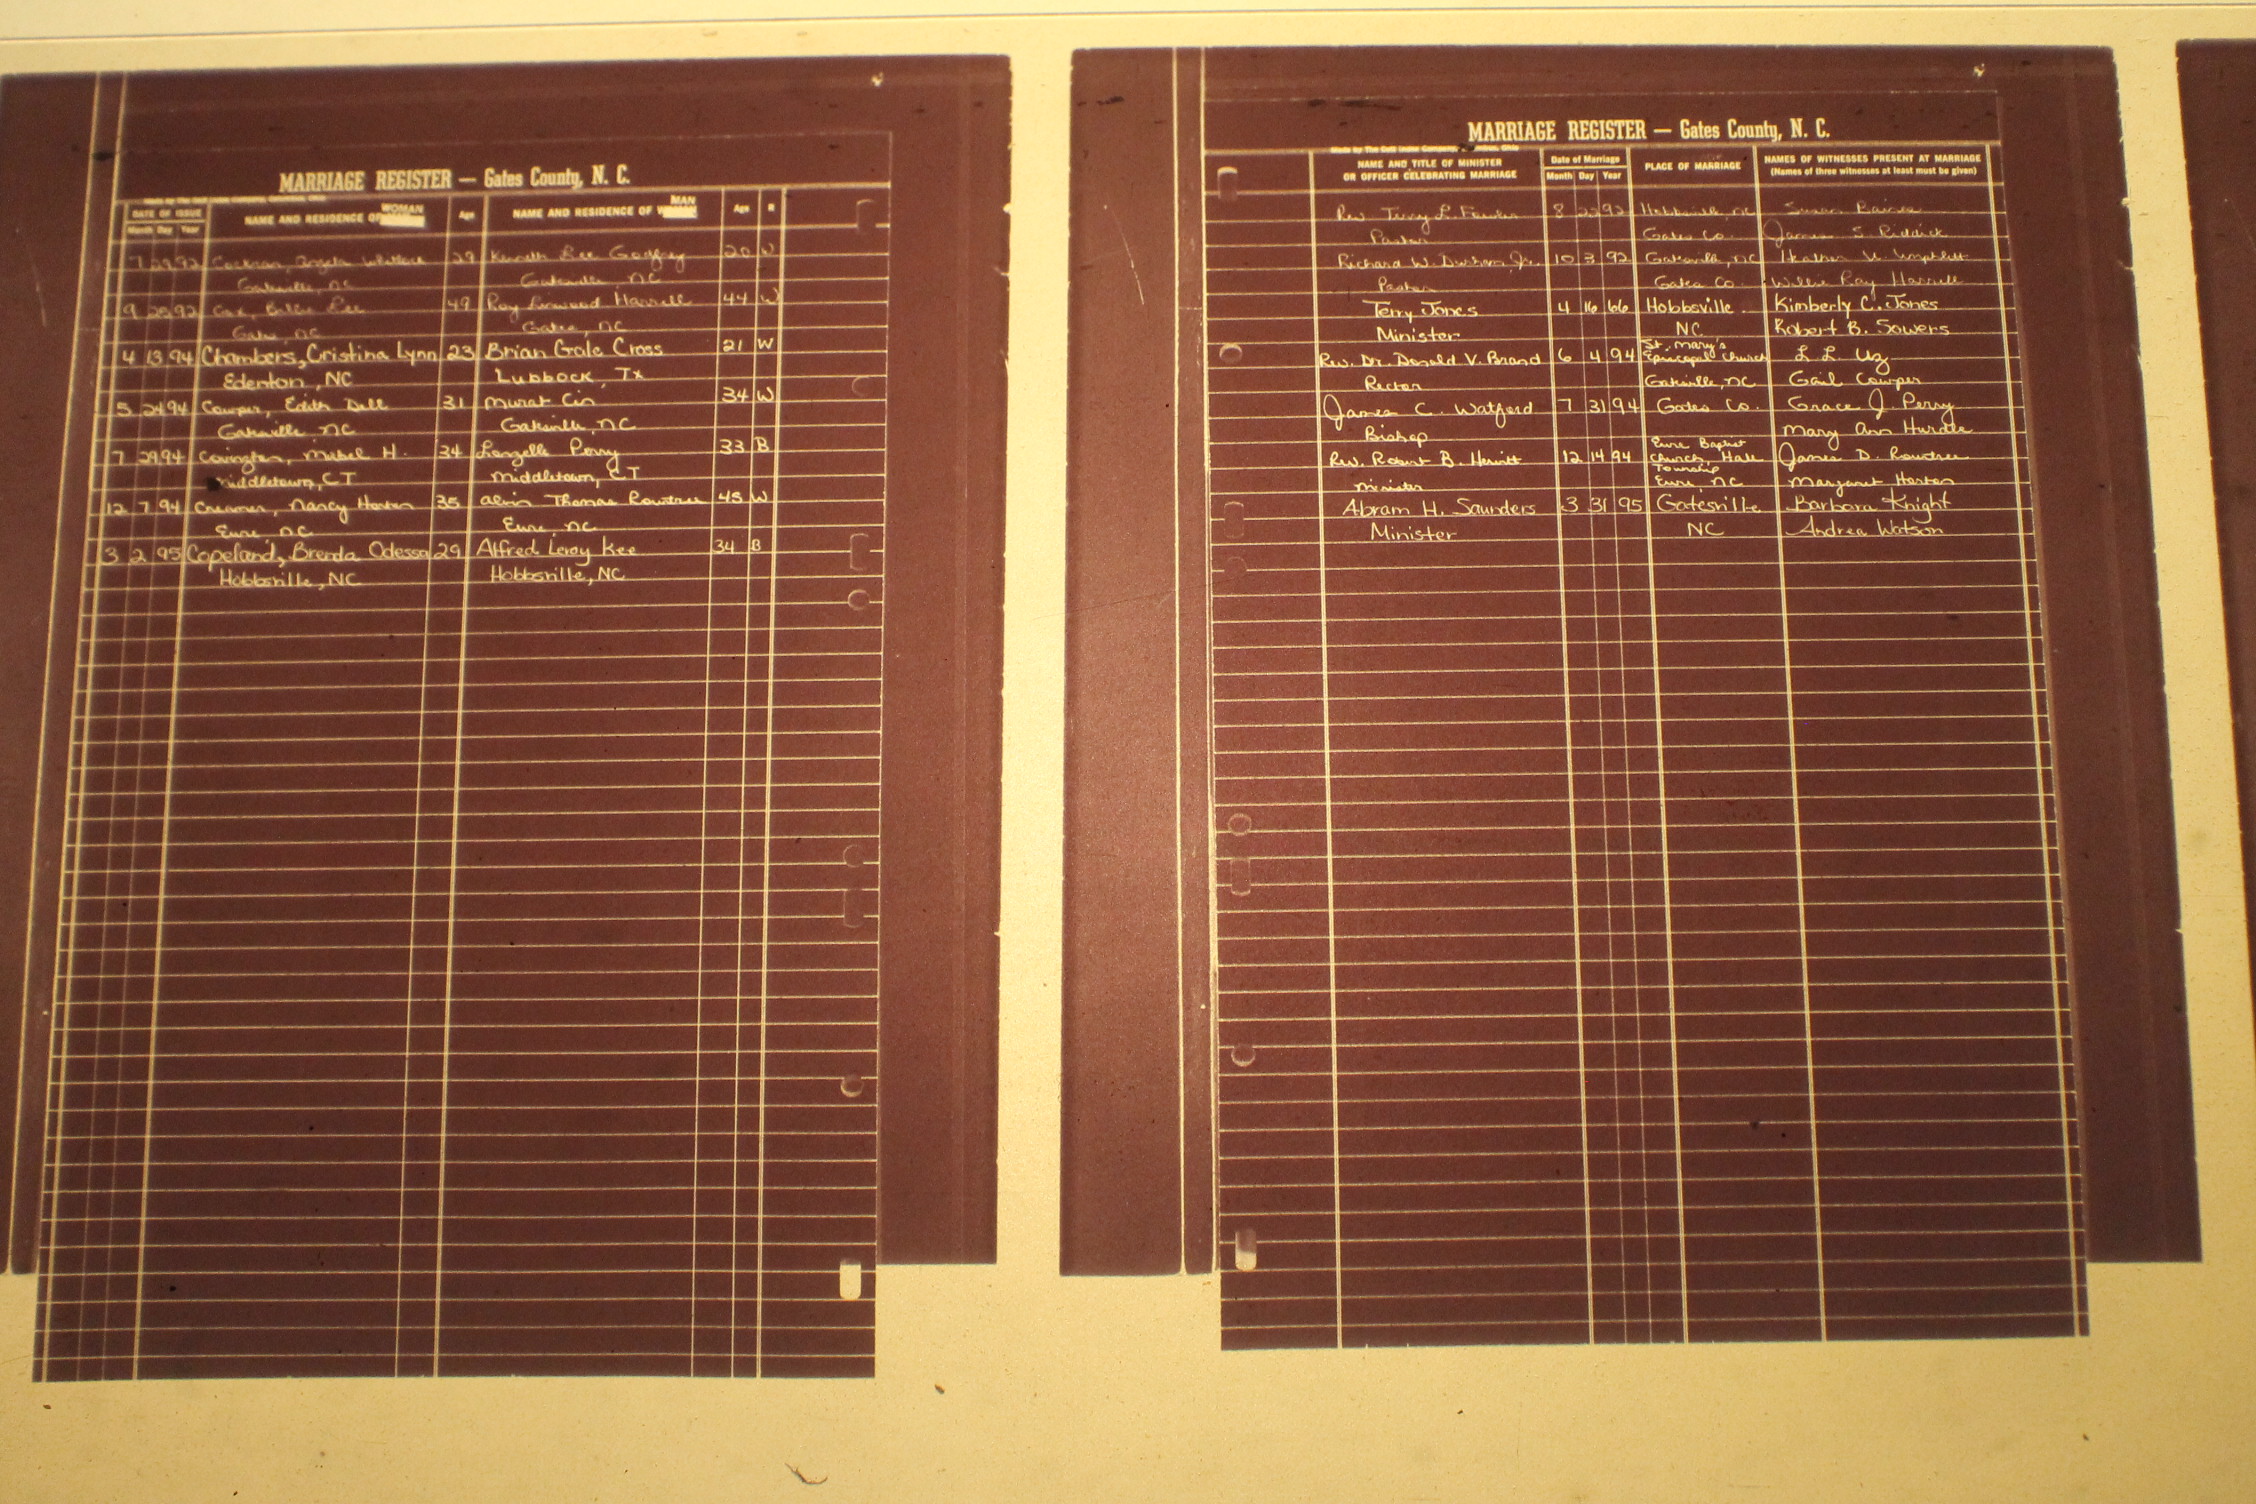 MARRIAGE REGISTER — Gates County, N. C.
DATE OF ISSUE
Month Day Year
NAME AND RESIDENCE OF WOMAN
Age
NAME AND RESIDENCE OF MAN
Age
R
7 29 92 Cochran, Angela 29 Kenneth Lee Godfrey 20 W
Gatesville, NC Gatesville, NC
9 92 Cox, Billie Lee 49 Roy Linwood Harrell 44 W
Gates, NC Gates, NC
4 13 94 Chambers, Cristina Lynn 23 Brian Gale Cross 21 W
Edenton, NC Lubbock, Tx
5 24 94 Cowper, Edith Dell 31 Murat Cin 34 W
Gatesville NC Gatesville, NC
7 29 94 Covington, Mabel H. 34 Longelle Perry 33 B
Middletown, CT Middletown, CT
12 7 94 Creamer, Nancy Horton 35 Alvin Thomas Rowntree 45 W
Eure, NC Eure, NC
3 2 95 Copeland, Brenda Odessa 29 Alfred Leroy Kee 34 B
Hobbsville, NC Hobbsville, NC
MARRIAGE REGISTER — Gates County, N. C.
NAME AND TITLE OF MINISTER
OR OFFICER CELEBRATING MARRIAGE
Date of Marriage
Month Day Year
PLACE OF MARRIAGE
NAMES OF WITNESSES PRESENT AT MARRIAGE
(Names of three witnesses at least must be given)
Rev. Terry L. 8 22 92 Hobbsville, NC Susan
Pastor Gates Co. James S. Riddick
Richard W. Durham, Jr. 10 3 92 Gatesville, NC Heather
Pastor Gates Co. Willie Ray Harrell
Terry Jones 4 16 66 Hobbsville Kimberly C. Jones
Minister NC Robert B. Sowers
Rev. Dr. Donald V. Brand 6 4 94 St. Mary's Episcopal Church L. L. Uz
Rector Gatesville, NC Gail Cowper
James C. Watford 7 31 94 Gates Co. Grace J. Perry
Bishop Mary Ann Hurdle
Rev. Robert B. Hewitt 12 14 94 Eure Baptist Church, Hall Township James D. Rowntree
Minister Eure NC Margaret Horton
Abram H. Saunders 3 31 95 Gatesville Barbara Knight
Minister NC Andrea Watson